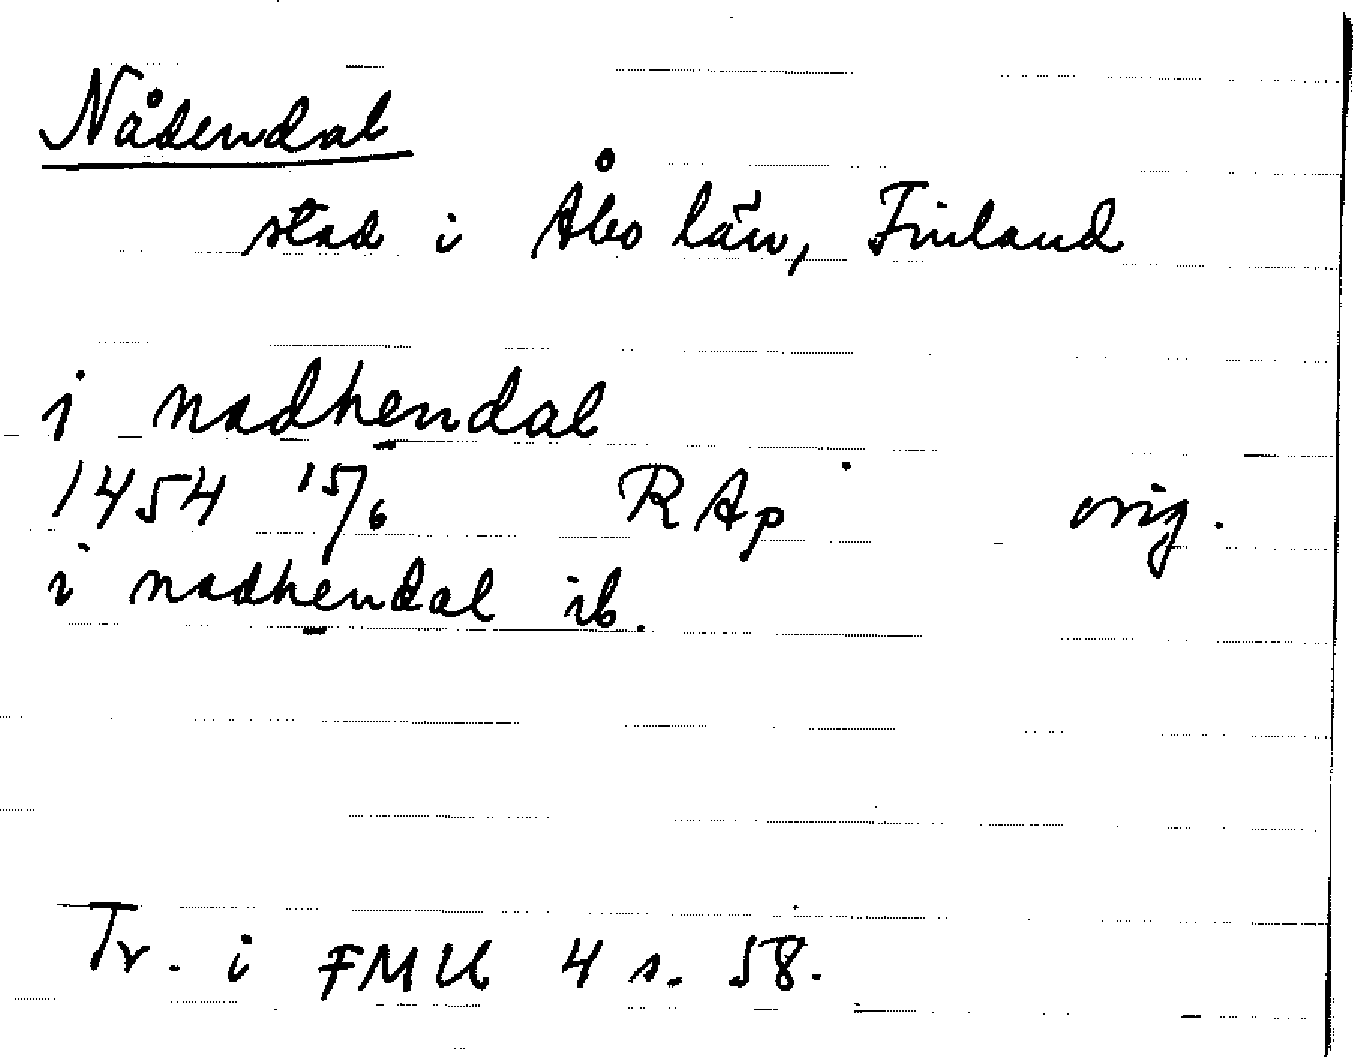 Nådendal
stad i Åbo län, Finland
i nadhendal
1454 15/6 RAp orig.
i nadhendal ib.
Tr. i FMU 4 s. 58.